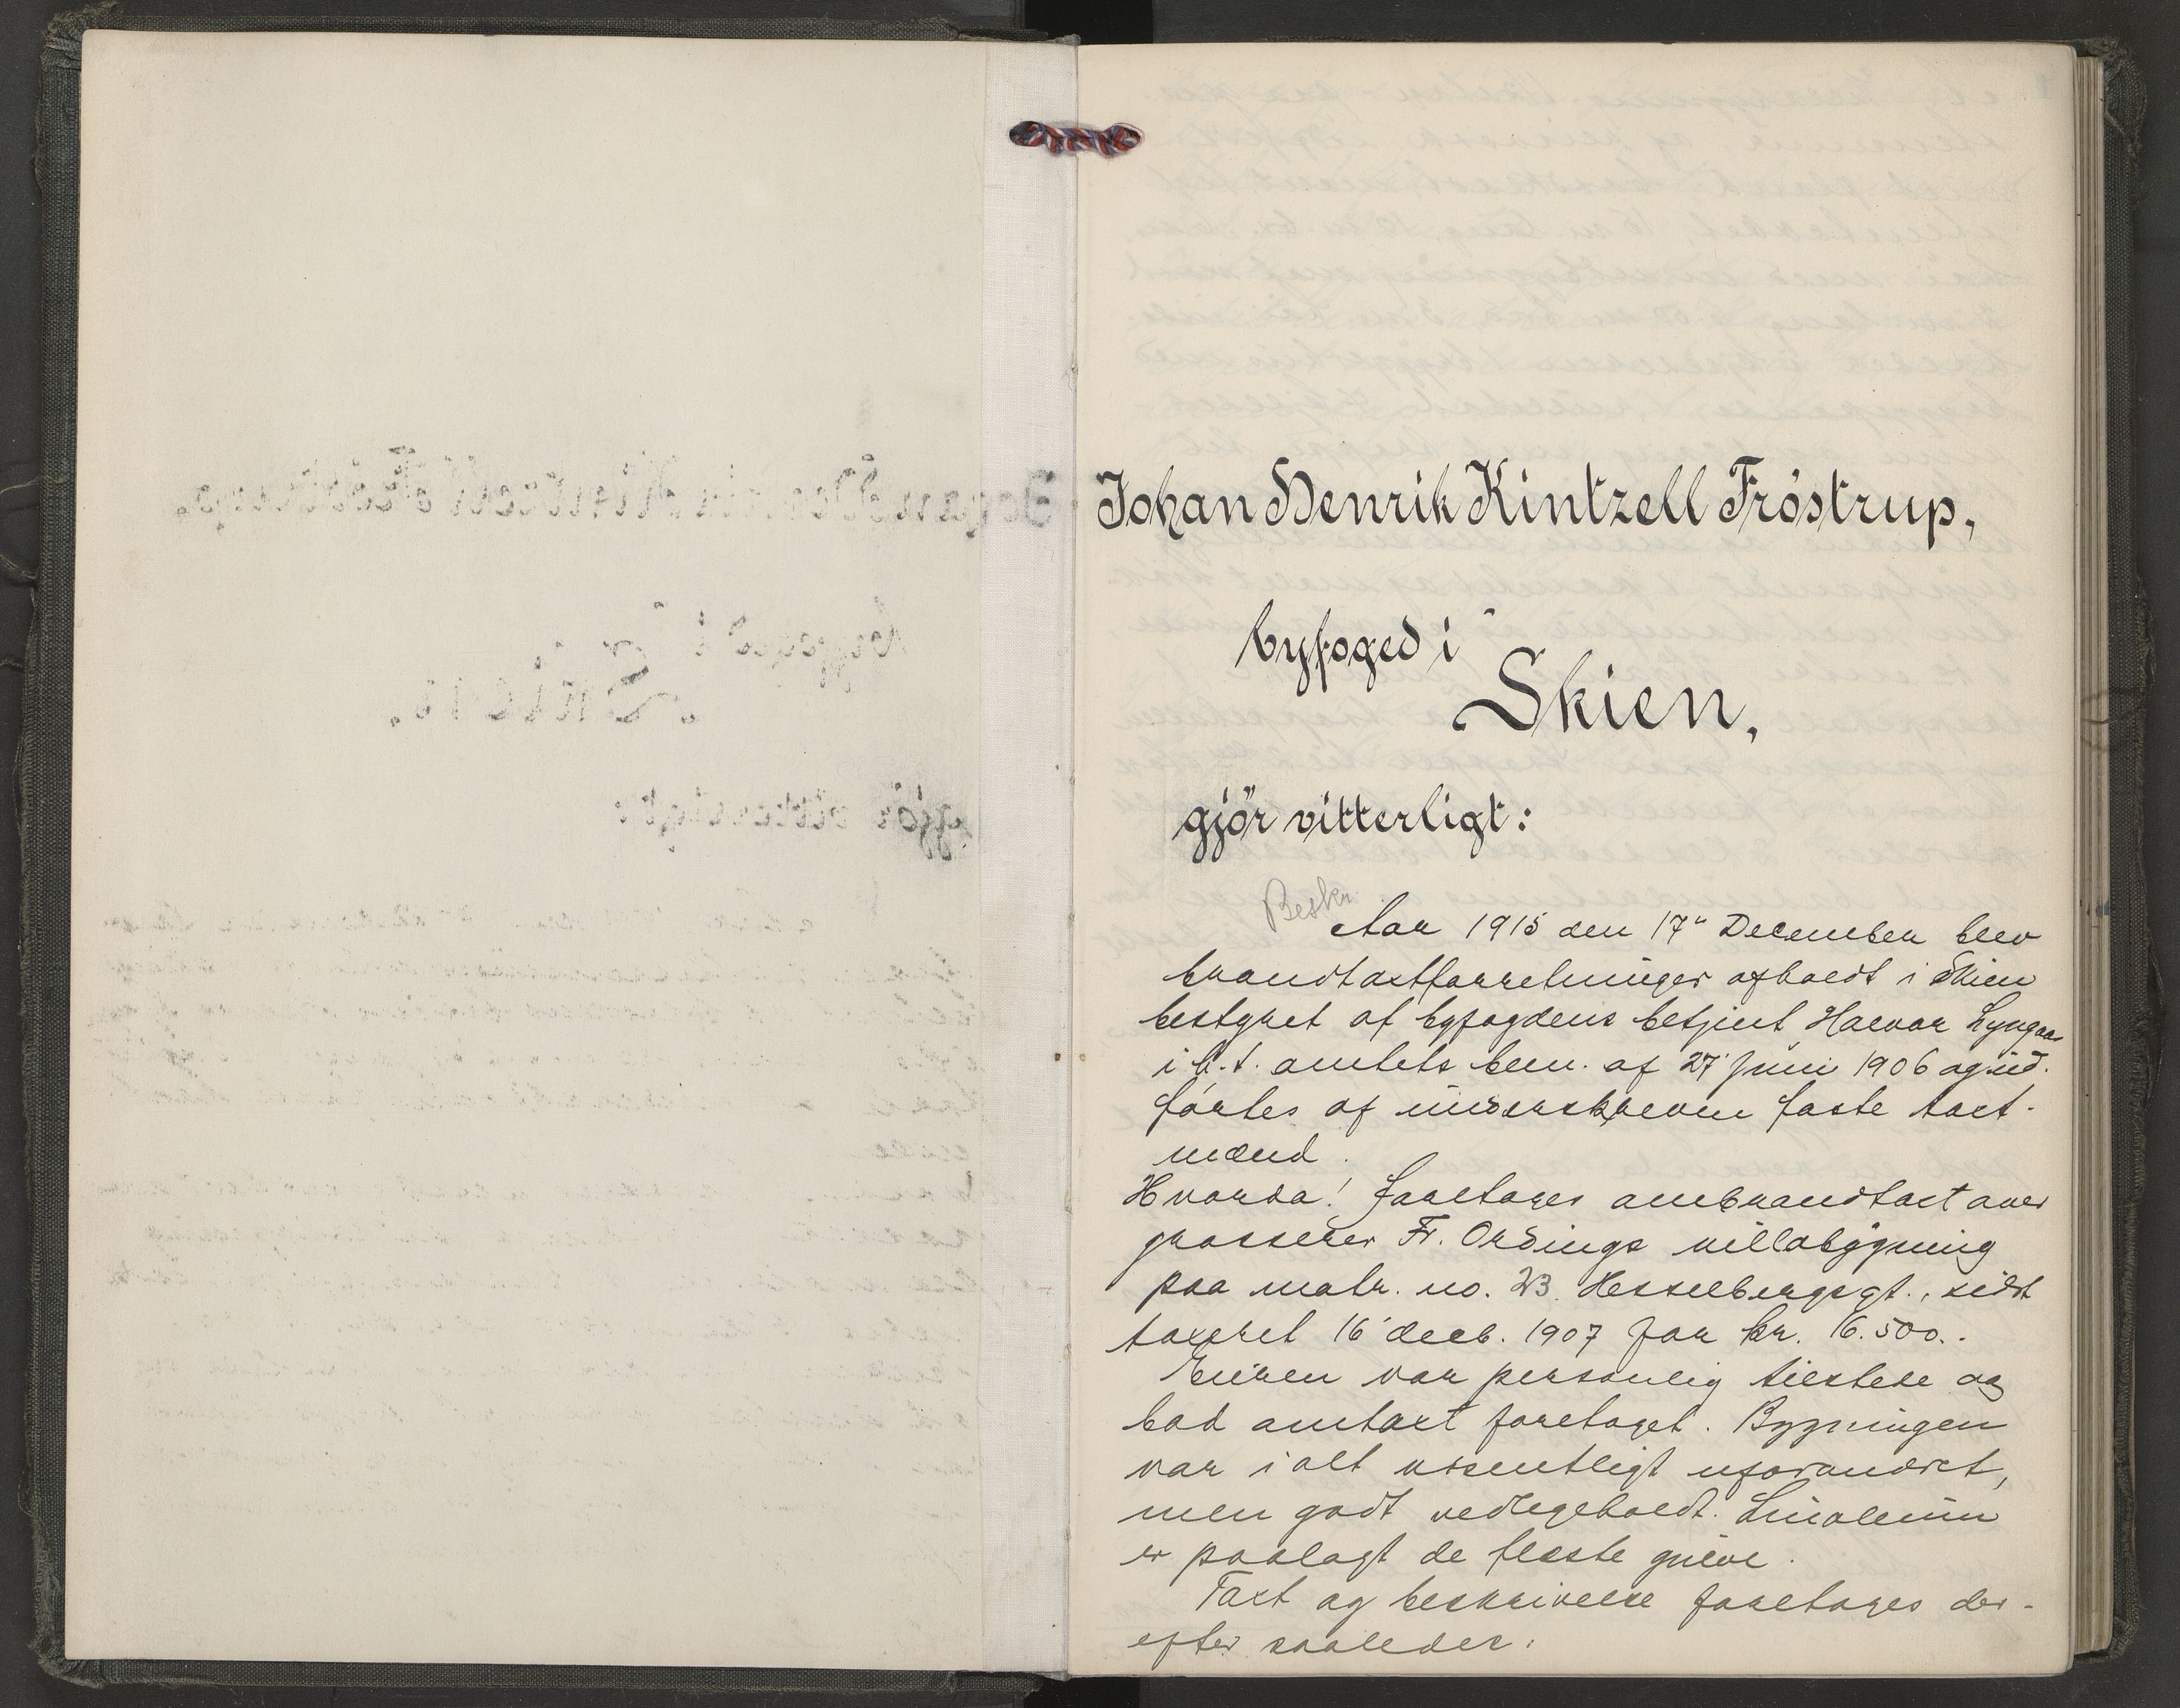 Johan Henrik Kintzell Fröstrup,
byfoged i
Skien,
gjör vitterligt:
Beskr.
Aar 1915 den 17de December blev
brandtaxtforretninger afholdt i Skien
bestyret af byfogdens betjent Halvor Lyngaas
i h.t. amtets bem. af 27' juni 1906 og ud-
førtes af underskrevne faste taxt-
mænd.
Hvorda! foretoges ombrandtaxt over
grosserer Fr. Ordings villabygning
paa matr. no. 23 Hesselbergsgt., sidst
taxeret 16' decb. 1907 for kr. 16.500..
Eieren var personlig tilstede og
bad omtaxt foretaget. Bygningen
var i alt væsentligt uforandret,
men godt vedligeholdt. Linoleum
er paalagt de fleste gulve.
Taxt og beskrivelse foretoges der-
efter saaledes: